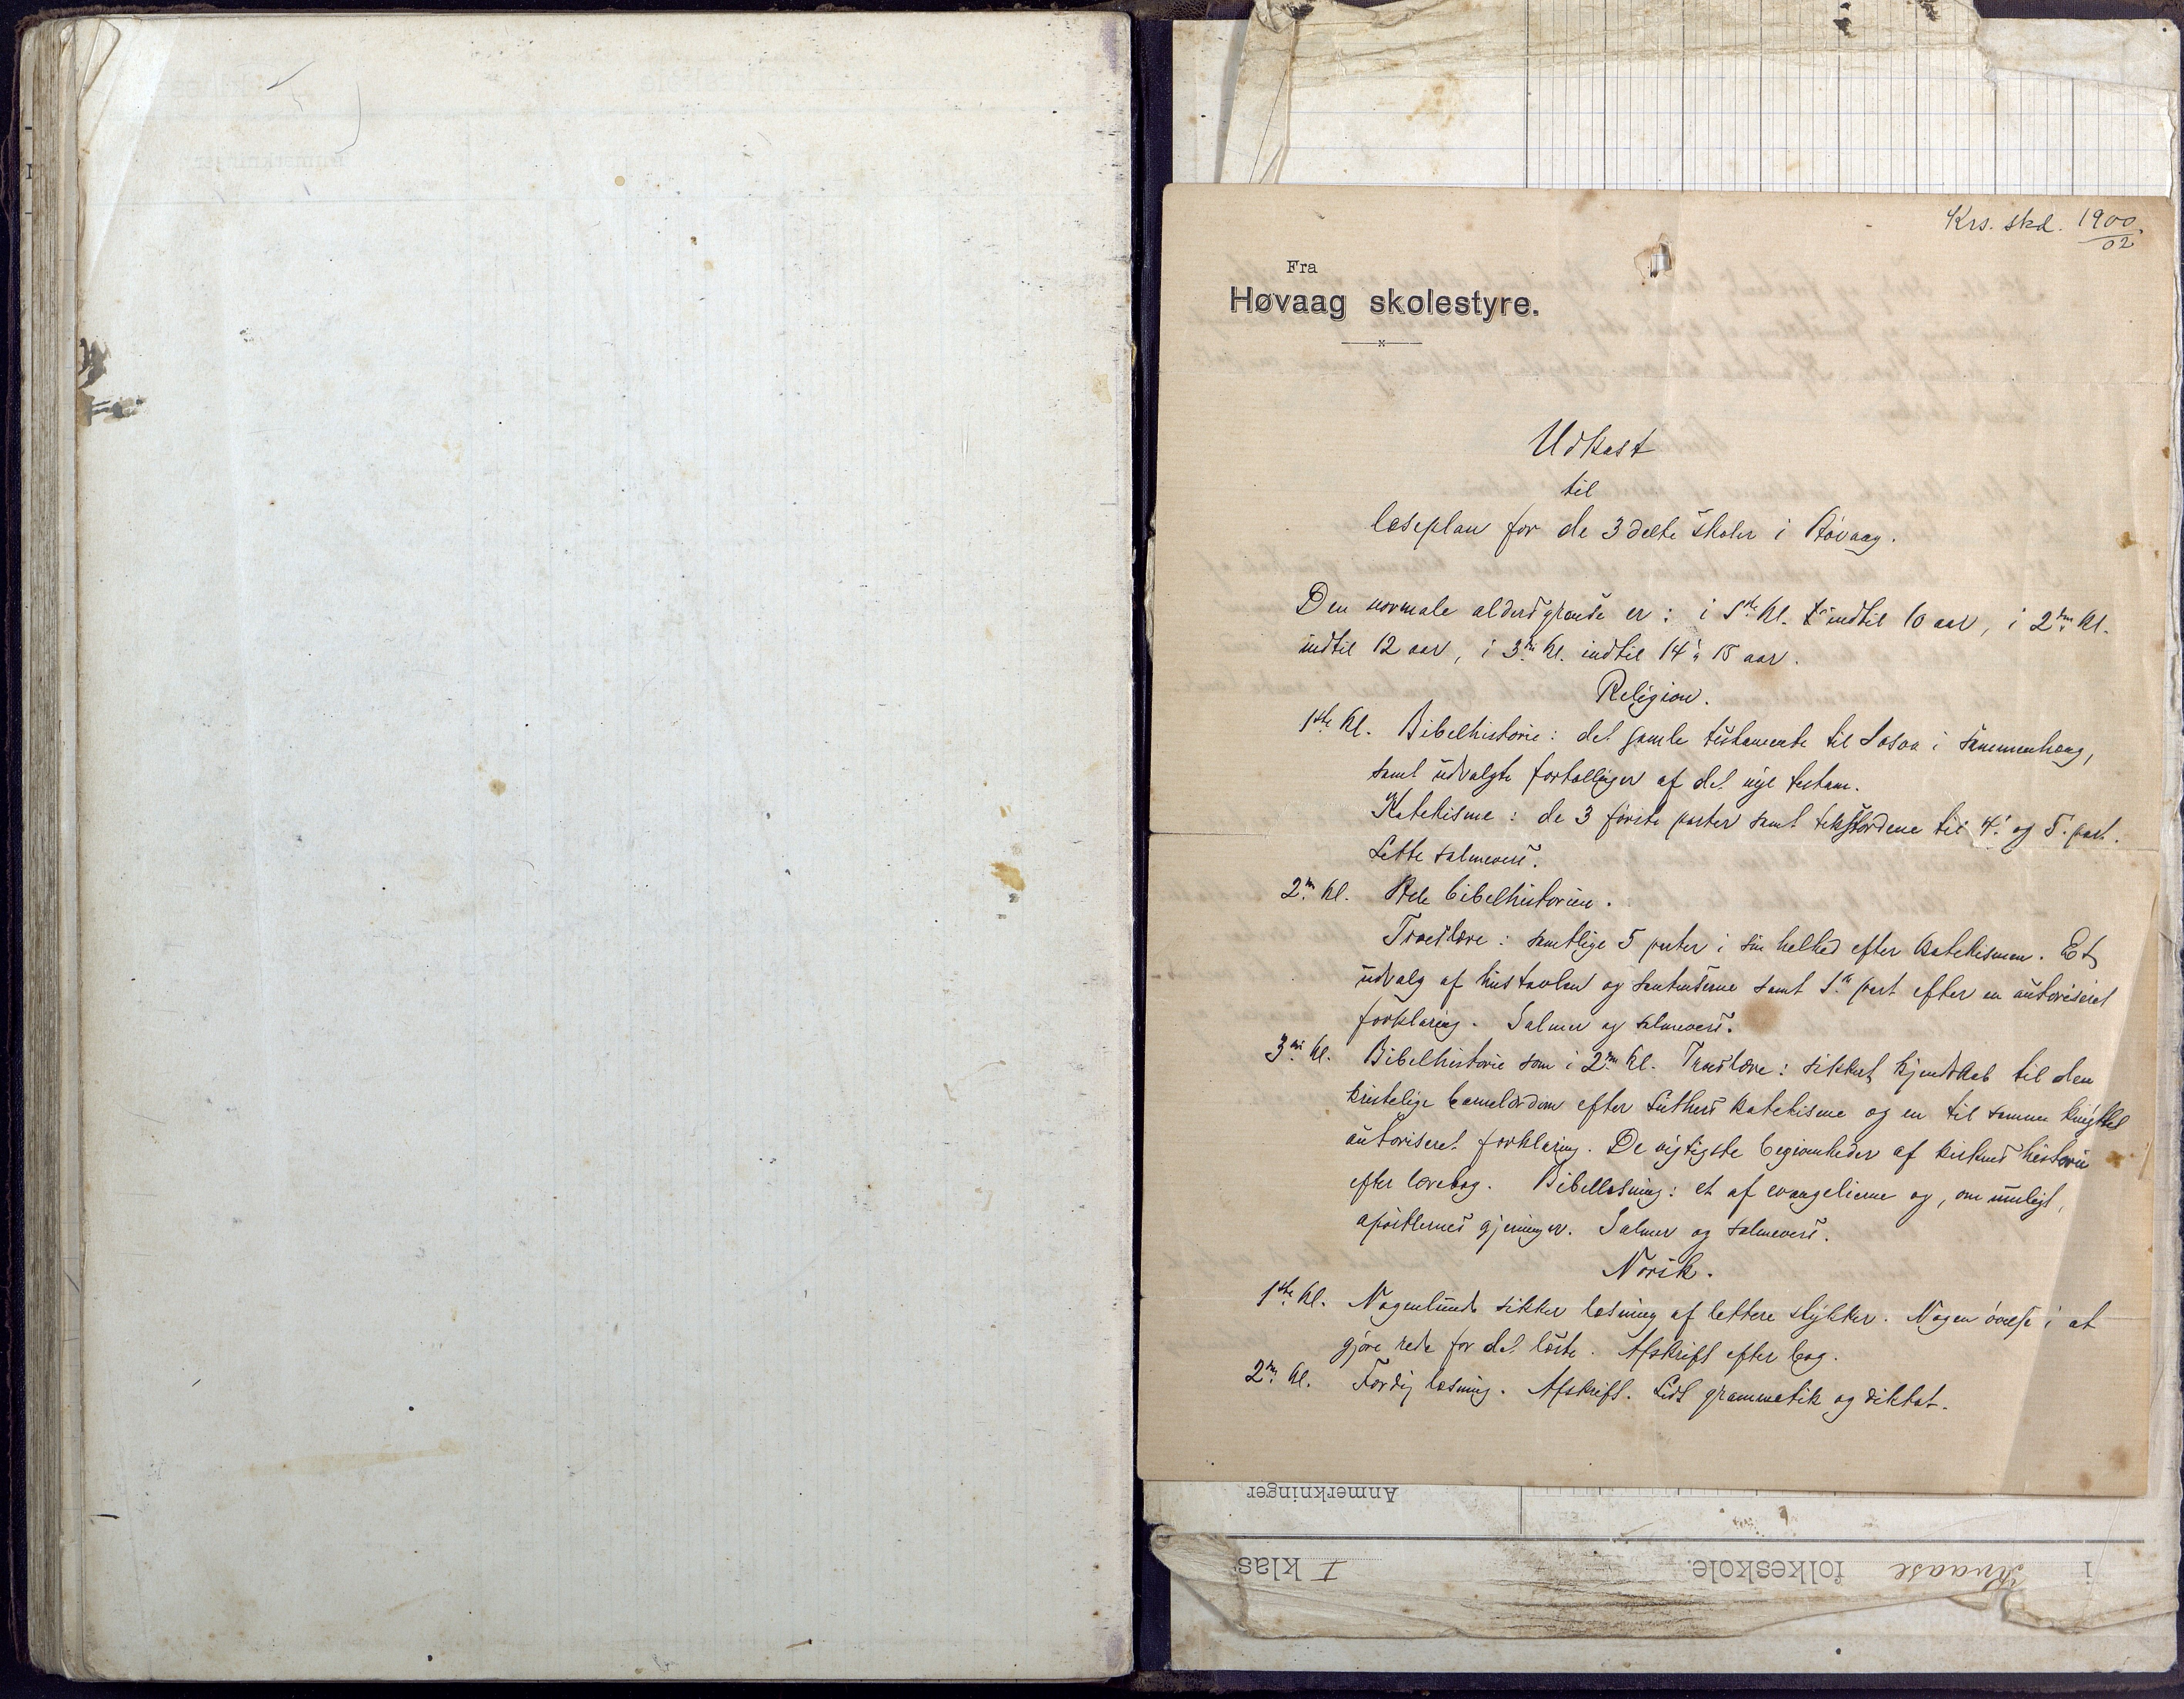 Krs. skd. 1900/02
Fra
Høvaag skolestyre.
Udkast
til
læseplan for de 3 delte skoler i Høvaag.
Den normale aldersgrændse er: i 1ste kl. indtil 10 aar, i 2den kl.
indtil 12 aar, i 3die kl. indtil 14 à 15 aar.
Religion.
1ste kl. Bibelhistorie: det gamle testamente til Josva i sammenhæng,
samt udvalgte fortællinger af det nye testam.
Katekisme: de 3 første parter samt tekstordene til 4. og 5. part.
Lette salmevers.
2den kl. Hele bibelhistorien.
Troeslære: samtlige 5 parter i sin helhed efter katekismen. Et
udvalg af hustavlen og samt 1ste part efter en autoriseret
forklaring. Salmer og salmevers.
3die kl. Bibelhistorie som i 2den kl. Troeslære: sikkert kjendskab til den
kristelige børnelærdom efter Luthers katekisme og en til samme knyttet
autoriseret forklaring. De vigtigste begivenheder af kirkens historie
efter lærebog. Bibellæsning: et af evangelierne og, om muligt,
apostlernes gjerninger. Salmer og salmevers.
Norsk.
1ste kl. Nogenlunde sikker læsning af lettere stykker. Nogen øvelse i at
gjøre rede for det læste. Afskrift efter bog.
2den kl. Færdig læsning. Afskrift. Lidt grammatik og diktat.
Anmerkninger
i folkeskole. I klas